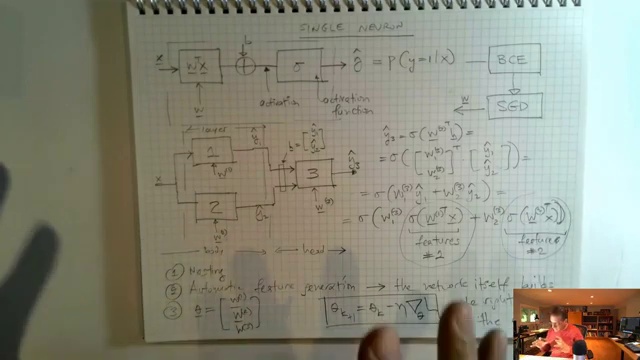 SINGLE NEURON
x wᵀx b σ ŷ = P(y=1|x) BCE
w activation activation function w SGD
1 layer
x 1 ŷ₁ b = [ŷ₁ ŷ₂] 3 ŷ₃
2 ŷ₂
ŷ₃ = σ(w⁽³⁾ᵀ b) =
= σ([w₁⁽³⁾ w₂⁽³⁾]ᵀ [ŷ₁ ŷ₂]) =
= σ(w₁⁽³⁾ ŷ₁ + w₂⁽³⁾ ŷ₂) =
= σ(w₁⁽³⁾ σ(w⁽¹⁾ᵀx) + w₂⁽³⁾ σ(w⁽²⁾ᵀx))
features features
#2 #2
head
① Nesting
② Automatic feature generation → the network itself builds
③ θ = θₖ₊₁ = θₖ − η∇θ the